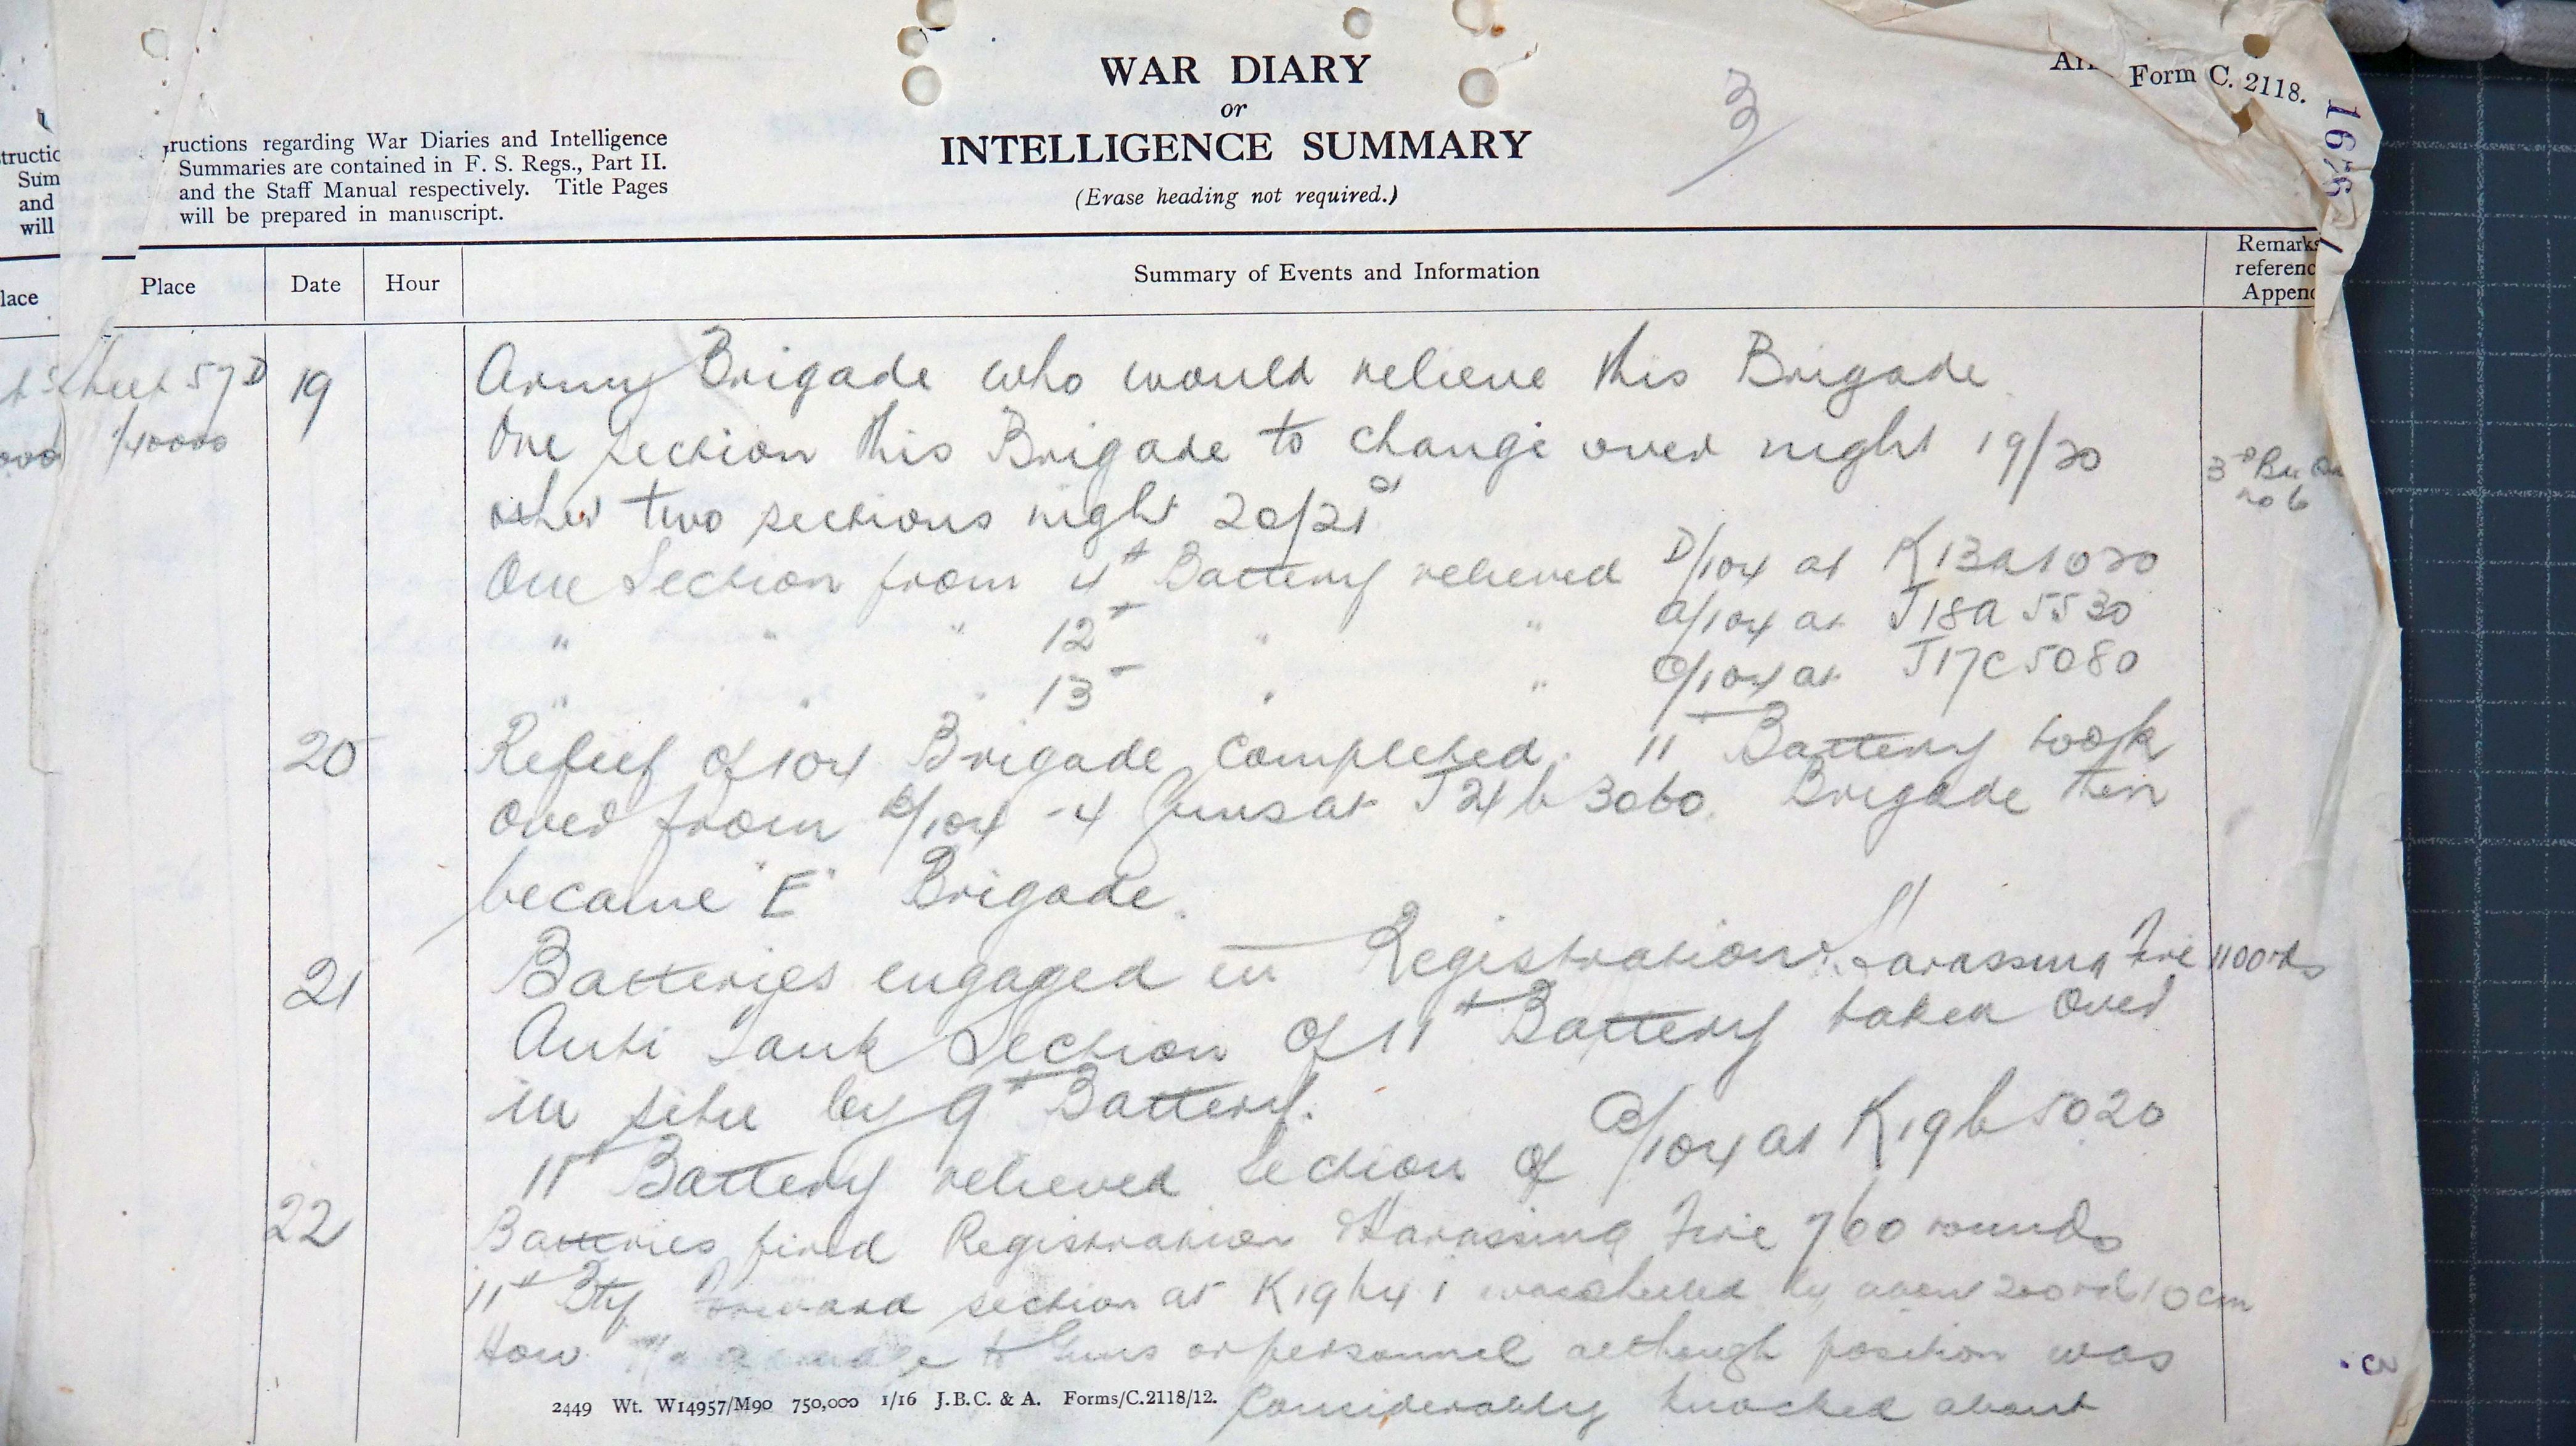 WAR DIARY
or
INTELLIGENCE SUMMARY
(Erase heading not required.)
3
Form C. 2118.
ructions regarding War Diaries and Intelligence
Summaries are contained in F. S. Regs., Part II.
and the Staff Manual respectively. Title Pages
will be prepared in manuscript.
structio
Sum
and
will
lace
Place
Date
Hour
Summary of Events and Information
Remarks
referenc
Appenc
Sheet 57D
1/40000
19
Army Brigade who would relieve this Brigade
One section this Brigade to change over night 19/20
other two sections night 20/21st
One Section from 4th Battery relieved D/104 at K13a1020
" " " 12th " " A/104 at J18a5530
" " " 13th " " C/104 at J17c5080
no 6
20
Relief of 104 Brigade completed. 11th Battery took
over from B/104 - 4 Guns at J24b3060. Brigade then
became "E" Brigade.
21
Batteries engaged in Registration & Harassing Fire 1100rds
Anti Tank Section of 11th Battery taken over
in situ by 9th Battery.
11th Battery relieved Section of 104 at K19b5020
22
Batteries fired Registration Harassing Fire 760 rounds
11th Bty Forward section at K19b41 was shelled by about 200 rds 10cm
How. No damage to Guns or personnel although position was
considerably knocked about
2449 Wt. W14957/M90 750,000 1/16 J.B.C. & A. Forms/C.2118/12.